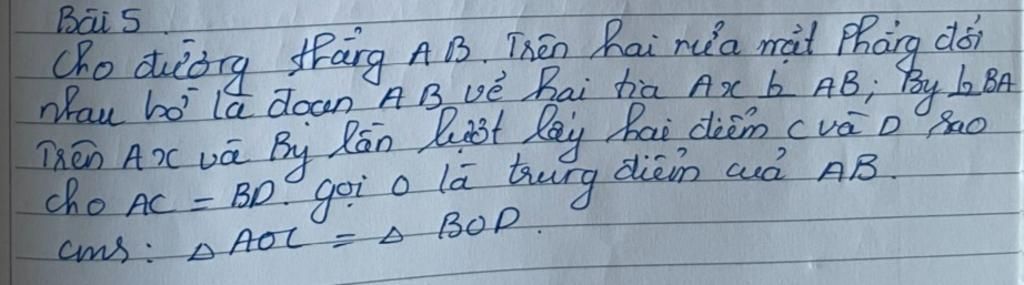 Bài 5
Cho đường thẳng AB. Trên hai nửa mặt phẳng đối
nhau bờ là đoạn AB vẽ hai tia Ax ⊥ AB; By ⊥ BA
Trên Ax và By lần lượt lấy hai điểm C và D sao
cho AC = BD. gọi O là trung điểm của AB.
cms: △ AOC = △ BOD.